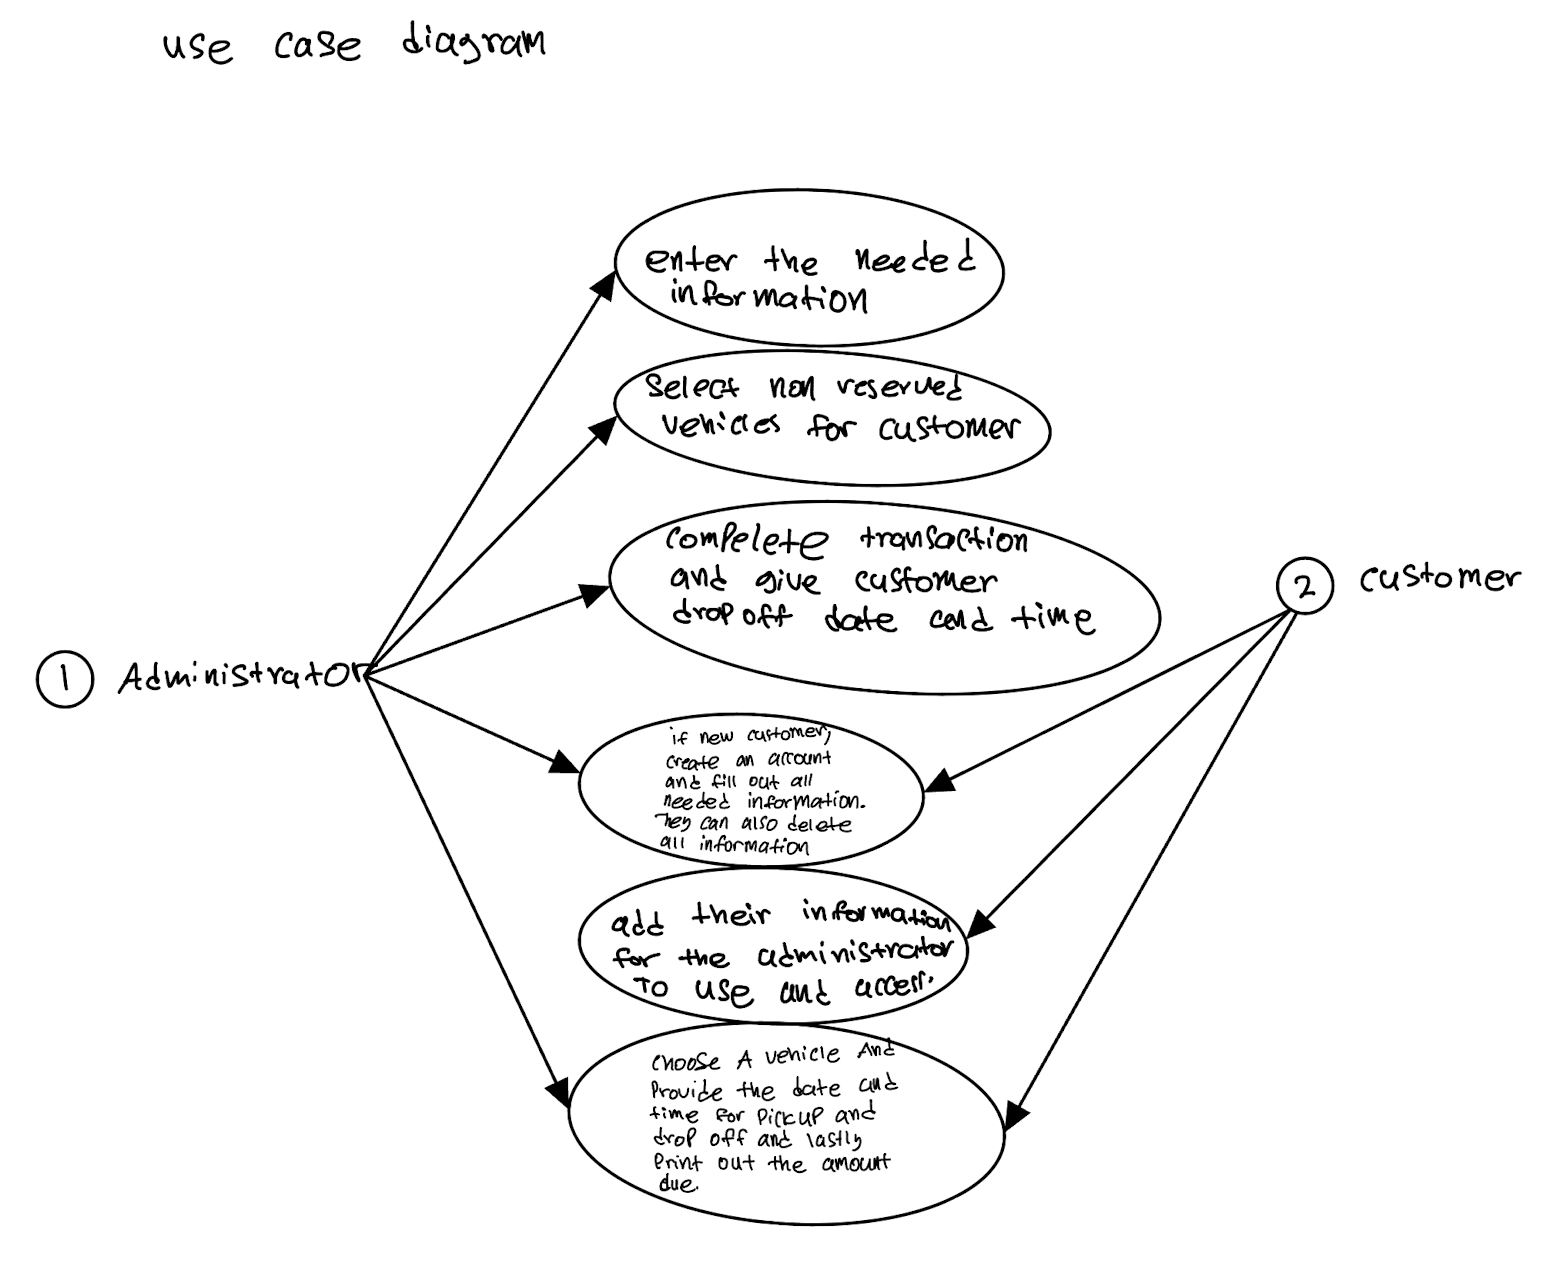 use case diagram
enter the needed
information
Select non reserved
vehicles for customer
compelete transaction
and give customer
drop off date and time
2 customer
1 Administrator
if new customer,
create an account
and fill out all
needed information.
They can also delete
all information
add their information
for the administrator
To use and access.
choose A vehicle And
Provide the date and
time for Pickup and
drop off and lastly
Print out the amount
due.